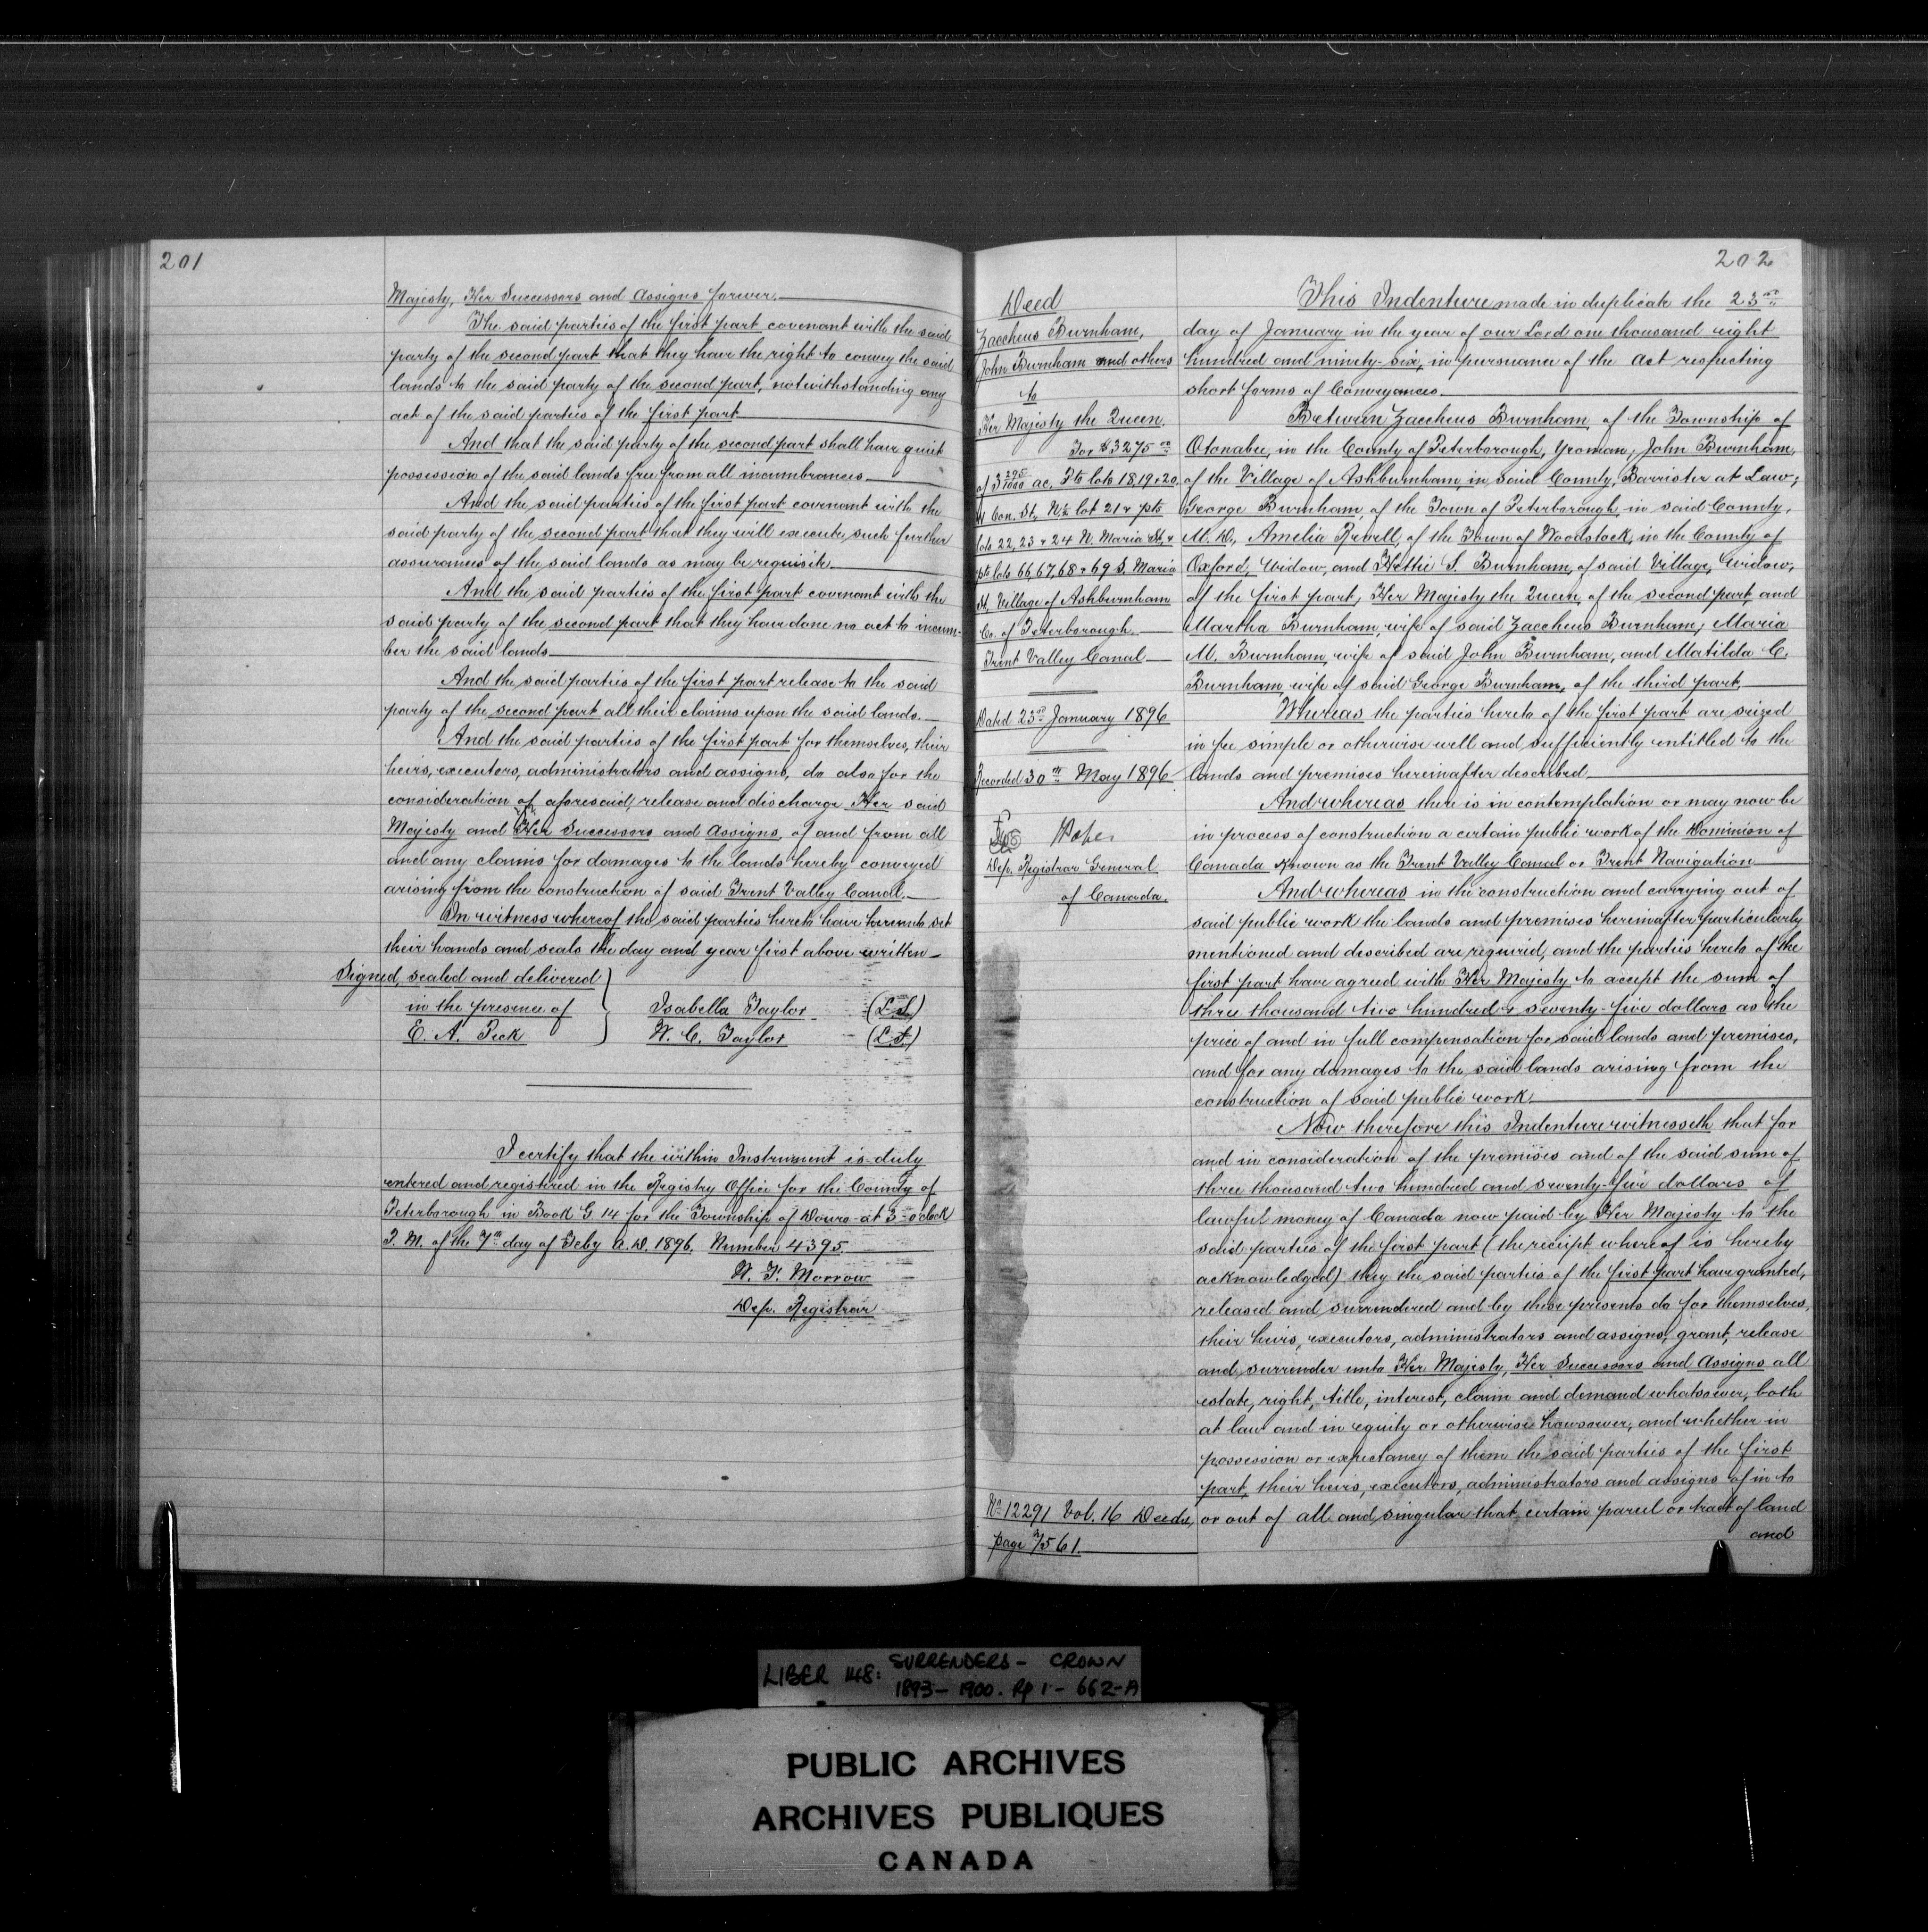 201
Majesty, Her Successors and Assigns forever.
The said parties of the first part covenant with the said
party of the second part that they have the right to convey the said
lands to the said party of the second part, notwithstanding any
act of the said parties of the first part
And that the said party of the second part shall have quiet
possession of the said lands free from all incumbrances
And the said parties of the first part covenant with the
said party of the second part that they will execute such further
assurances of the said lands as may be requisite.
And the said parties of the first part covenant with the
said party of the second part that they have done no act to incum-
ber the said lands
And the said parties of the first part release to the said
party of the second part all their claims upon the said lands.
And the said parties of the first part for themselves, their
heirs, executors, administrators and assigns, do also for the
consideration of aforesaid, release and discharge Her said
Majesty and Her Successors and Assigns, of and from all
and any claims for damages to the lands hereby conveyed
arising from the construction of said Trent Valley Canal.
In witness whereof the said parties hereto have hereunto set
their hands and seals the day and year first above written
Signed, sealed and delivered
in the presence of Isabella Taylor (L.S.)
E. A. Peck W. C. Taylor (L.S.)
I certify that the within Instrument is duly
entered and registered in the Registry Office for the County of
Peterborough in Book G 14 for the Township of Douro at 3 o'clock
P. M. of the 7th day of Feby A.D. 1896. Number 4395.
W. F. Morrow
Dep. Registrar
202
Deed
Zaccheus Burnham,
John Burnham and others
to
Her Majesty the Queen.
For $3275 00
of 3 295/1000 ac. Pts lots 18 19 & 20,
W Con. St, N½ lot 21 & pts
lots 22, 23 & 24 N. Maria St, &
pts lots 66, 67, 68 & 69 S. Maria
St, Village of Ashburnham
Co. of Peterborough
Trent Valley Canal
Dated 23rd January 1896
Recorded 30th May 1896
Pope
Dep. Registrar General
of Canada.
No 12291 Vol. 16 Deeds,
page 561.
This Indenture made in duplicate the 23rd
day of January in the year of our Lord one thousand eight
hundred and ninety-six, in pursuance of the Act respecting
short forms of Conveyances.
Between Zaccheus Burnham, of the Township of
Otonabee, in the County of Peterborough, Yeoman; John Burnham,
of the Village of Ashburnham, in said County, Barrister at Law;
George Burnham, of the Town of Peterborough, in said County,
M. D., Amelia Revell, of the Town of Woodstock, in the County of
Oxford, Widow, and Hettie S. Burnham, of said Village, Widow,
of the first part; Her Majesty the Queen, of the second part, and
Martha Burnham, wife of said Zaccheus Burnham; Maria
M. Burnham, wife of said John Burnham, and Matilda C.
Burnham, wife of said George Burnham, of the third part.
Whereas the parties hereto of the first part are seized
in fee simple or otherwise well and sufficiently entitled to the
lands and premises hereinafter described
And whereas there is in contemplation or may now be
in process of construction a certain public work of the Dominion of
Canada known as the Trent Valley Canal or Trent Navigation
And whereas in the construction and carrying out of
said public work the lands and premises hereinafter particularly
mentioned and described are required, and the parties hereto of the
first part have agreed with Her Majesty to accept the sum of
three thousand two hundred & seventy-five dollars as the
price of and in full compensation for said lands and premises,
and for any damages to the said lands arising from the
construction of said public work
Now therefore this Indenture witnesseth that for
and in consideration of the premises and of the said sum of
three thousand two hundred and seventy-five dollars of
lawful money of Canada now paid by Her Majesty to the
said parties of the first part (the receipt whereof is hereby
acknowledged) they the said parties of the first part have granted,
released and surrendered and by these presents do for themselves,
their heirs, executors, administrators and assigns, grant, release
and surrender unto Her Majesty, Her Successors and Assigns all
estate, right, title, interest, claim and demand whatsoever, both
at law and in equity or otherwise howsoever, and whether in
possession or expectancy of them the said parties of the first
part, their heirs, executors, administrators and assigns of in to
or out of all and singular that certain parcel or tract of land
and
LIBER 148: SURRENDERS - CROWN
1893-1900. Pp 1 - 662-A
PUBLIC ARCHIVES
ARCHIVES PUBLIQUES
CANADA